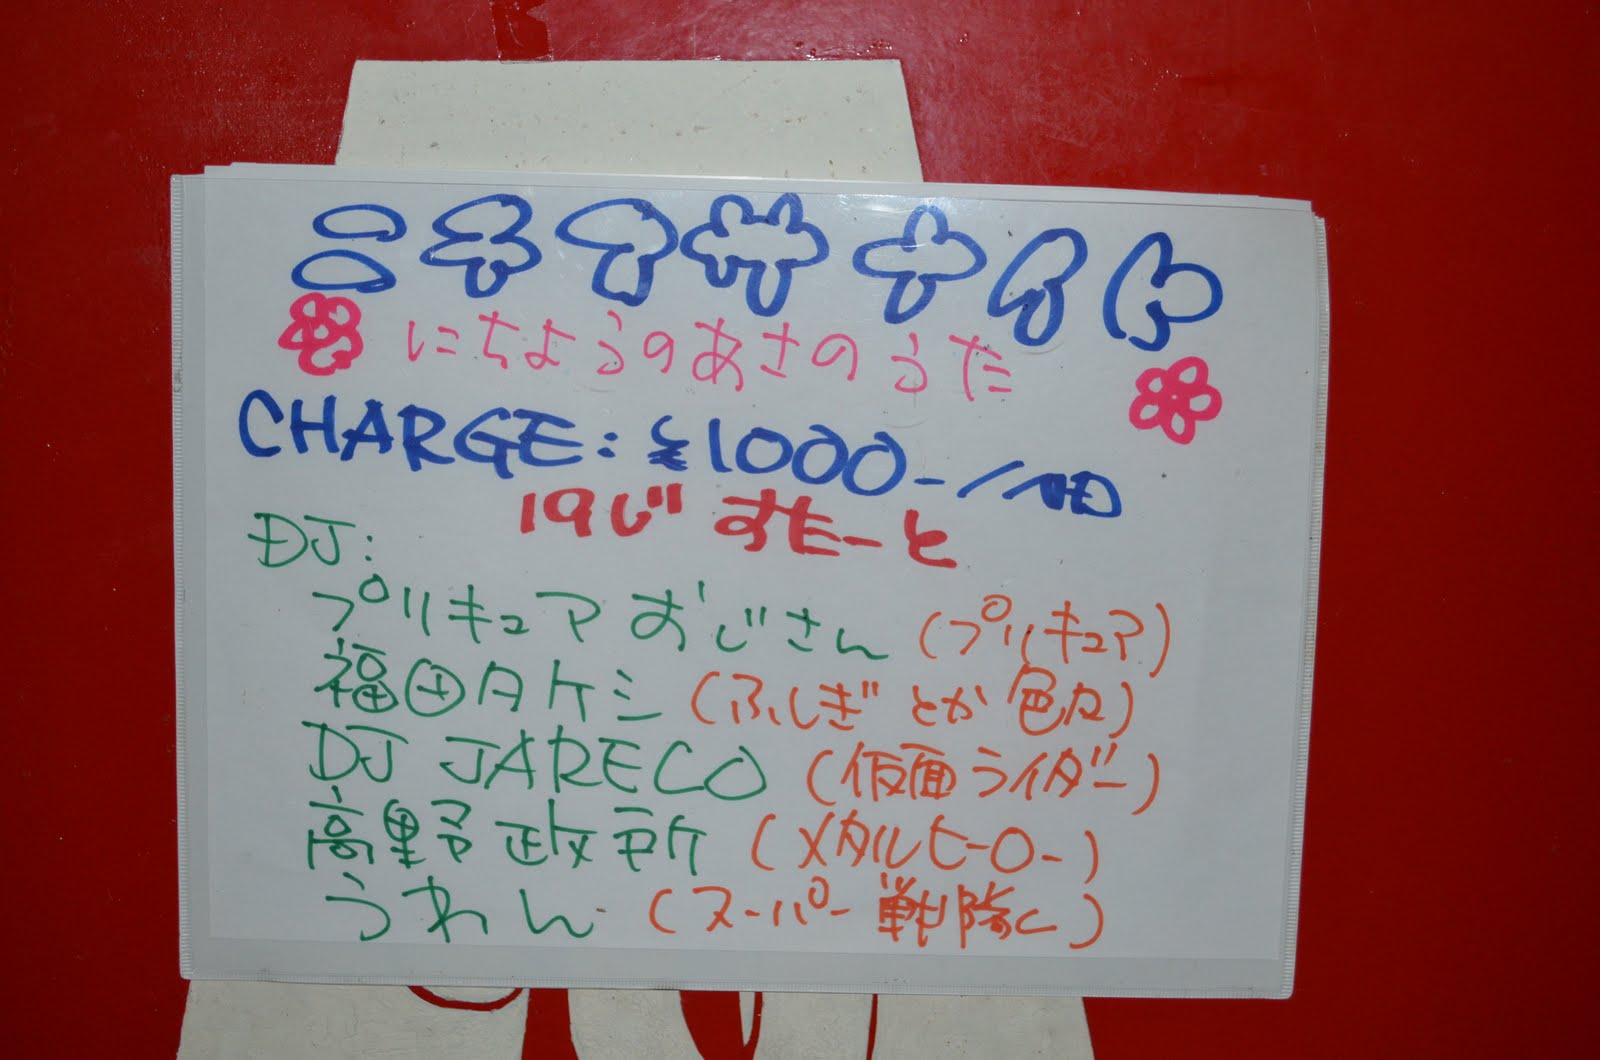 ニチアサナイト
にちようのあさのうた
CHARGE: ¥1000-/
19じ すたーと
DJ:
プリキュアおじさん (プリキュア)
福田タケシ (ふしぎとか色々)
DJ JARECO (仮面ライダー)
高野政所 (メタルヒーロー)
うわん (スーパー戦隊)